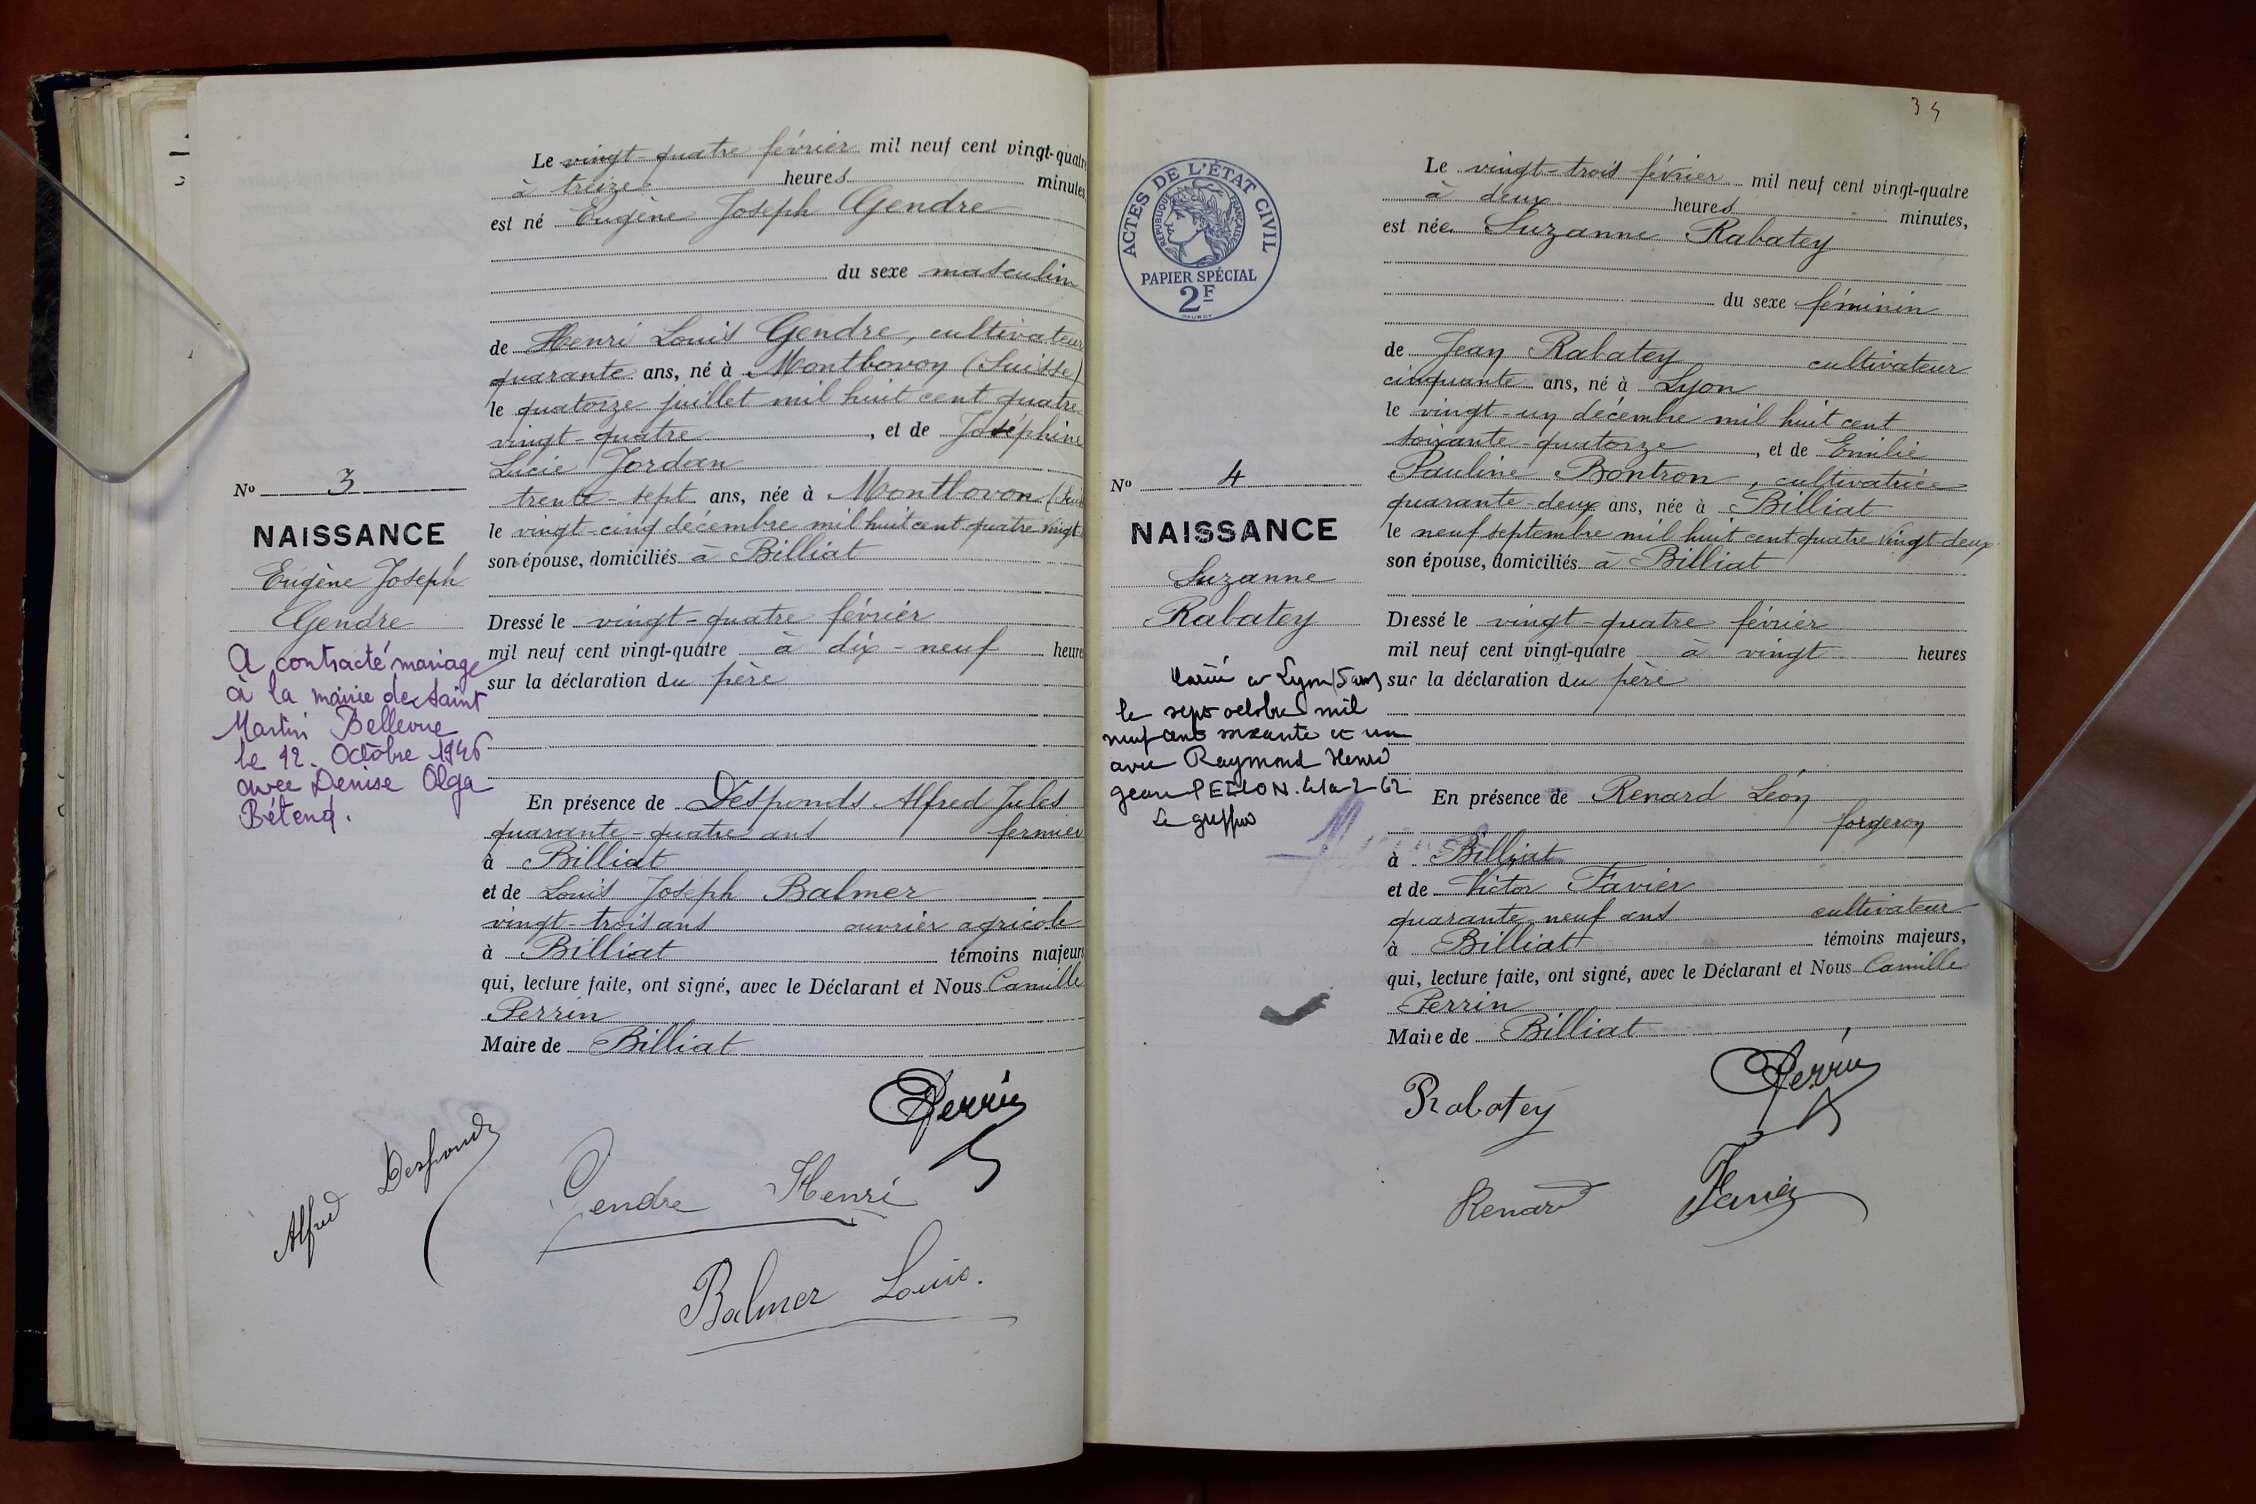 Le vingt-quatre février mil neuf cent vingt-quatre
à treize heures minutes
est né Eugène Joseph Gendre
du sexe masculin
de Henri Louis Gendre, cultivateur
quarante ans, né à Montbovon (Suisse)
le quatorze juillet mil huit cent quatre
vingt-quatre, et de Joséphine
Lucie Jordan
trente-sept ans, née à Montbovon
le vingt-cinq décembre mil huit cent quatre vingt
son épouse, domiciliés à Billiat
Dressé le vingt-quatre février
mil neuf cent vingt-quatre à dix-neuf heure
sur la déclaration du père
En présence de Desponds Alfred Jules
quarante-quatre ans fermier
à Billiat
et de Louis Joseph Balmer
vingt-trois ans ouvrier agricole
à Billiat témoins majeurs
qui, lecture faite, ont signé, avec le Déclarant et Nous Camille
Perrin
Maire de Billiat
No 3
NAISSANCE
Eugène Joseph
Gendre
A contracté mariage
à la mairie de Saint
Martin Bellevue
le 12 Octobre 1946
avec Denise Olga
Bétend.
Perrin
Alfred Desponds
Gendre Henri
Balmer Louis.
ACTES DE L'ÉTAT CIVIL
RÉPUBLIQUE FRANÇAISE
PAPIER SPÉCIAL
2F
Le vingt-trois février mil neuf cent vingt-quatre
à deux heures minutes,
est née Suzanne Rabatey
du sexe féminin
de Jean Rabatey cultivateur
cinquante ans, né à Lyon
le vingt-un décembre mil huit cent
soixante-quatorze, et de Emilie
Pauline Bontron, cultivatrice
quarante-deux ans, née à Billiat
le neuf septembre mil huit cent quatre vingt deux
son épouse, domiciliés à Billiat
Dressé le vingt-quatre février
mil neuf cent vingt-quatre à vingt heures
sur la déclaration du père
En présence de Renard Léon
forgeron
à Billiat
et de Victor Favier
quarante neuf ans cultivateur
à Billiat témoins majeurs,
qui, lecture faite, ont signé, avec le Déclarant et Nous Camille
Perrin
Maire de Billiat
No 4
NAISSANCE
Suzanne
Rabatey
Mariée à Lyon
le sept octobre mil
neuf cent soixante et un
avec Raymond Henri
Jean
Le greffier
Perrin
Rabatey
Renard
Favier